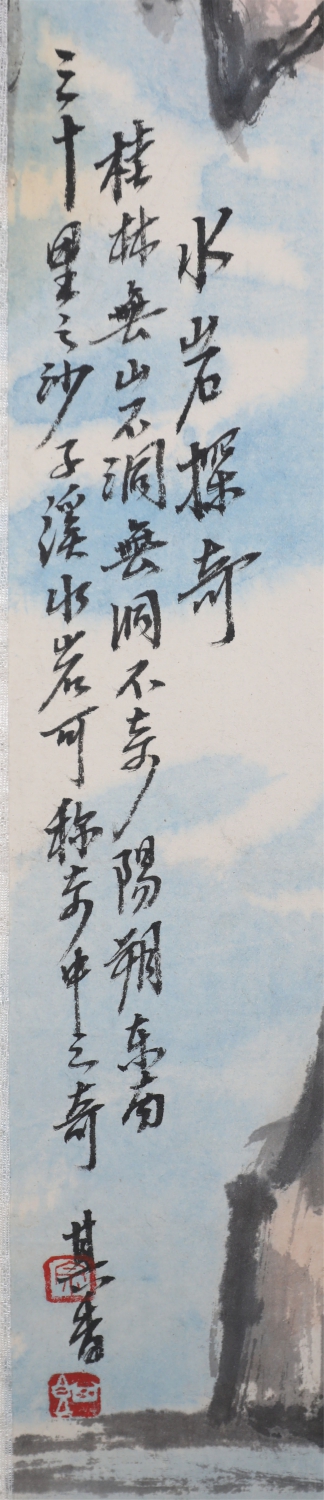 水岩探奇
桂林無山不洞無洞不奇陽朔东南
三十里之沙子溪水岩可称奇中之奇